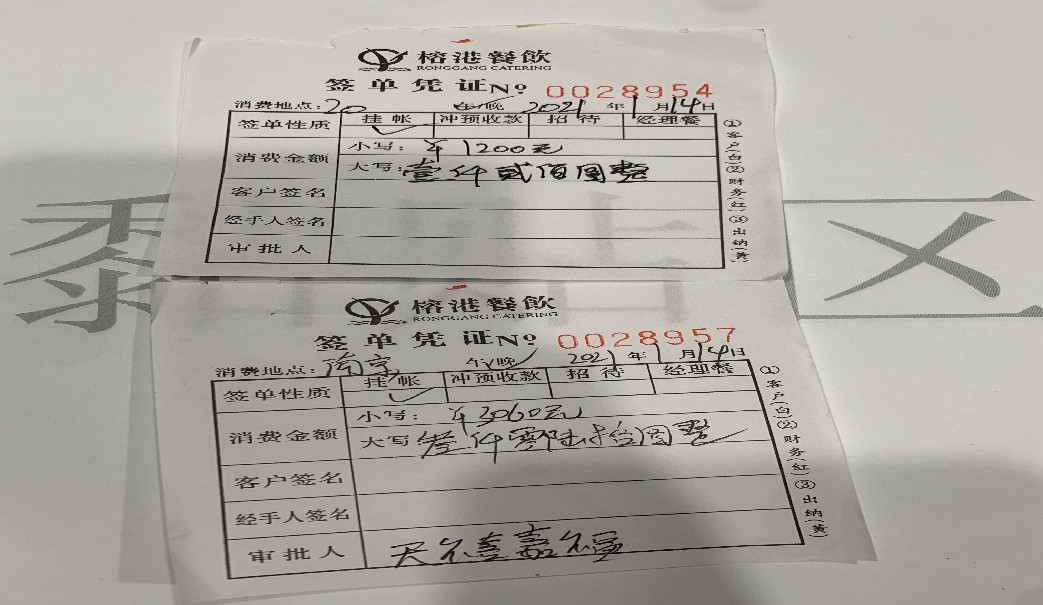 榕港餐飲
RONGGANG CATERING
签单凭证 No 0028954
消费地点：20 午/晚 2021年1月14日
签单性质 挂帐 ✓ 冲预收款 招待 经理餐
消费金额 小写：¥1200元
大写：壹仟贰佰圆整
客户签名
经手人签名
审批人
①客户(白)②财务(红)③出纳(黄)
区
榕港餐飲
RONGGANG CATERING
签单凭证 No 0028957
消费地点：南京 午/晚 2021年1月14日
签单性质 挂帐 ✓ 冲预收款 招待 经理餐
消费金额 小写：¥3060元
大写 叁仟零陆拾圆整
客户签名
经手人签名
审批人
①客户(白)②财务(红)③出纳(黄)